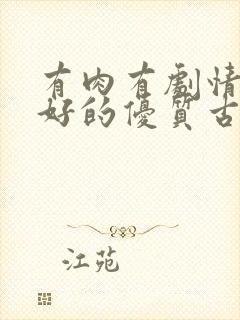 有肉有劇情
好的優質古
江苑